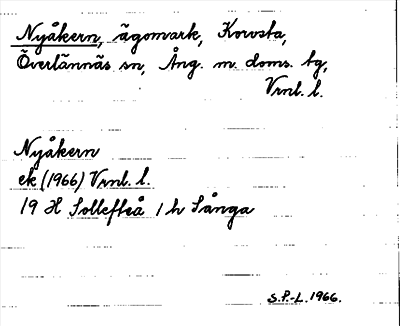 Nyåkern, ägomark, Korsta,
Överlännäs sn, Ång. m. doms. tg,
Vrnl. l.
Nyåkern
ek (1966) Vrnl. l.
19 H Sollefteå 1 h Sånga
S.P.-L. 1966.